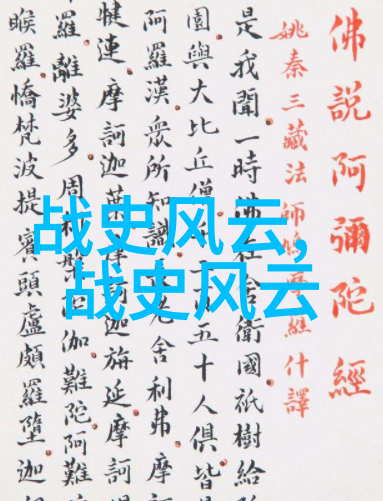 佛說阿彌陀經
姚秦三藏法師鳩摩羅什譯
是我聞一時佛在舍衛國祇樹給
園與大比丘僧二五十人俱皆
阿羅漢眾所知識長老舍利弗摩訶
犍連摩訶迦葉摩訶迦旃延摩訶
羅離婆多周利槃陀伽難陀阿難
睺羅憍梵波提賓頭盧頗羅墮迦
战史风云,
战史风云